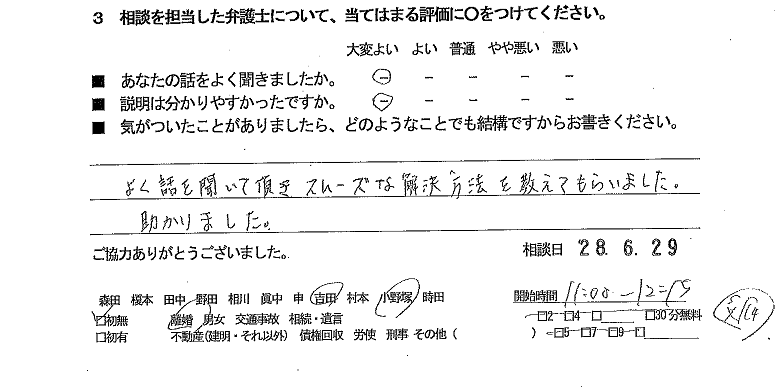 3 相談を担当した弁護士について、当てはまる評価に〇をつけてください。
大変よい よい 普通 やや悪い 悪い
■ あなたの話をよく聞きましたか。 － － － － －
■ 説明は分かりやすかったですか。 － － － － －
■ 気がついたことがありましたら、どのようなことでも結構ですからお書きください。
よく話を聞いて頂き スムーズな解決方法を教えてもらいました。
助かりました。
ご協力ありがとうございました。 相談日 28.6.29
森田 榎本 田中 野田 相川 眞中 申 吉田 村本 小野塚 時田 開始時間 11:05 － 12=15
□初無 離婚 男女 交通事故 相続・遺言 －□2 □4 □ □30分無料
□初有 不動産(建明・それ以外) 債権回収 労使 刑事 その他 ( ) ＝□5 □7 □9 □